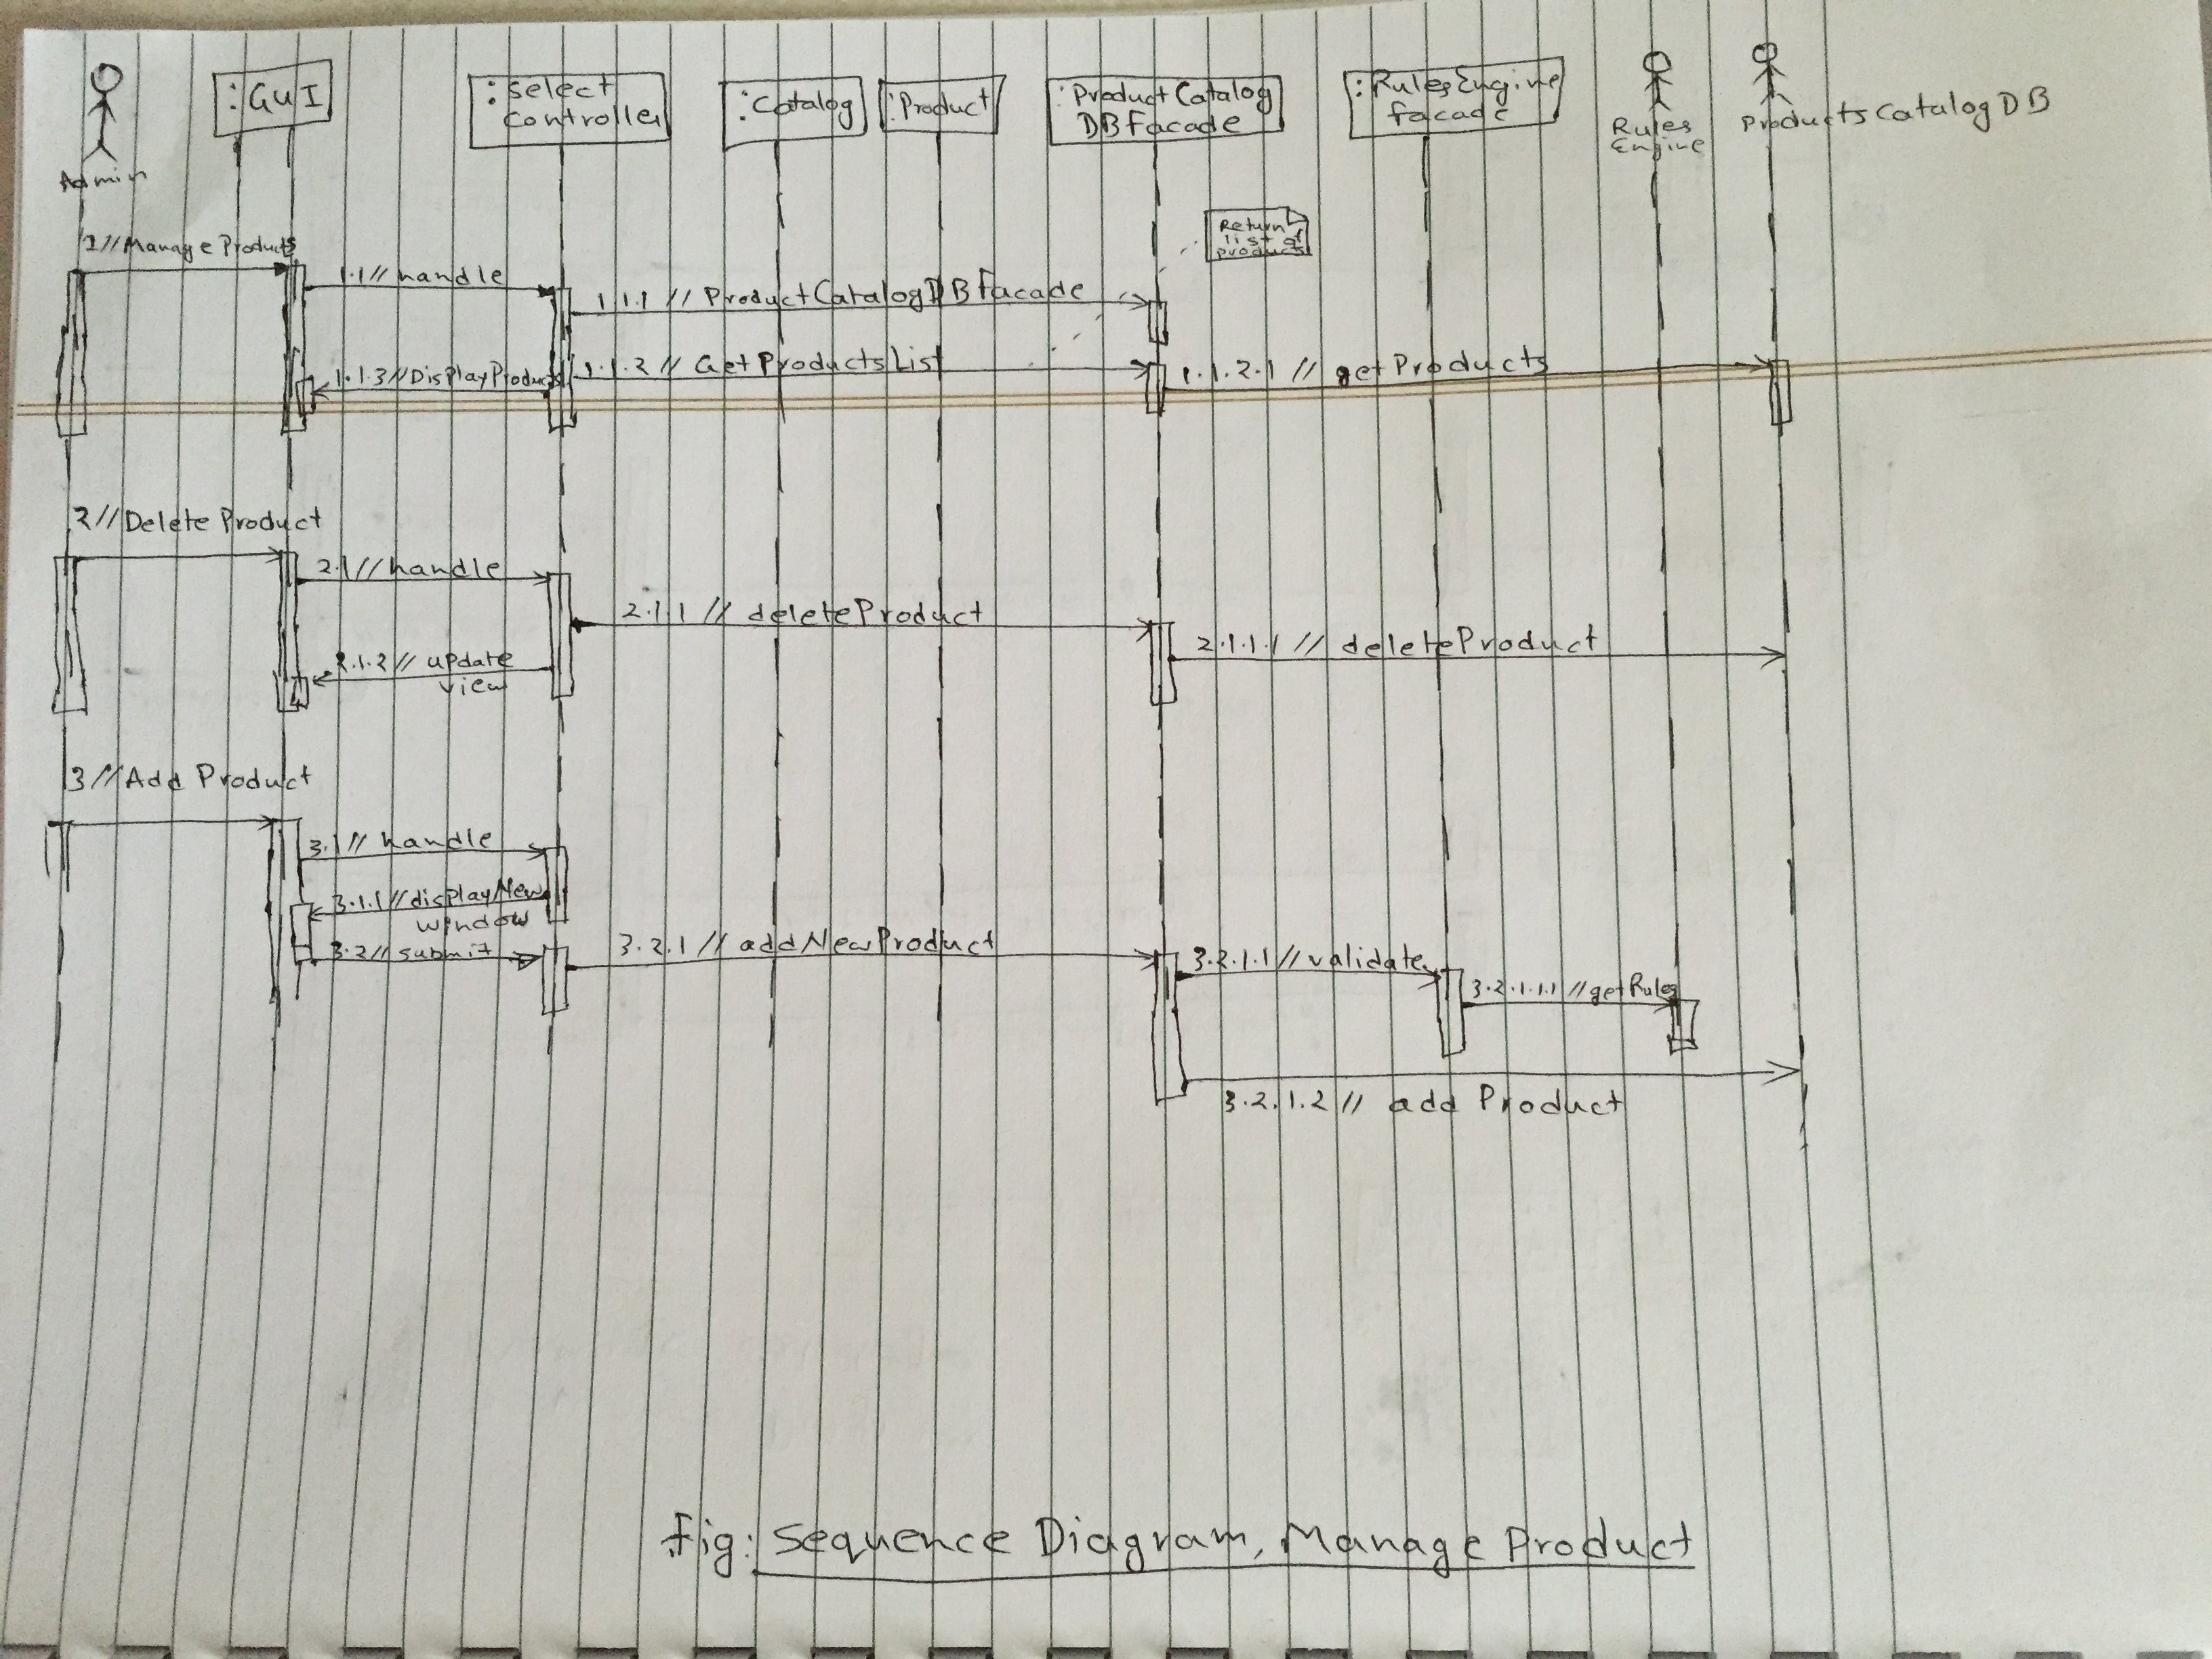 :GUI
:Select
Controller
:Catalog
:Product
:ProductCatalog
DBFacade
:RulesEngine
facade
Rules
Engine
ProductsCatalogDB
Admin
Return
list of
products
1//Manage Products
1.1// handle
1.1.1 // ProductCatalogDBFacade
1.1.2 // GetProductsList
1.1.2.1 // getProducts
1.1.3//DisplayProducts
2//Delete Product
2.1//handle
2.1.1 // deleteProduct
2.1.1.1 // deleteProduct
2.1.2// update
view
3//Add Product
3.1// handle
3.1.1//displayNew
window
3.2//submit
3.2.1 // addNewProduct
3.2.1.1 //validate
3.2.1.1.1 //getRules
3.2.1.2 // add Product
Fig: Sequence Diagram, Manage Product